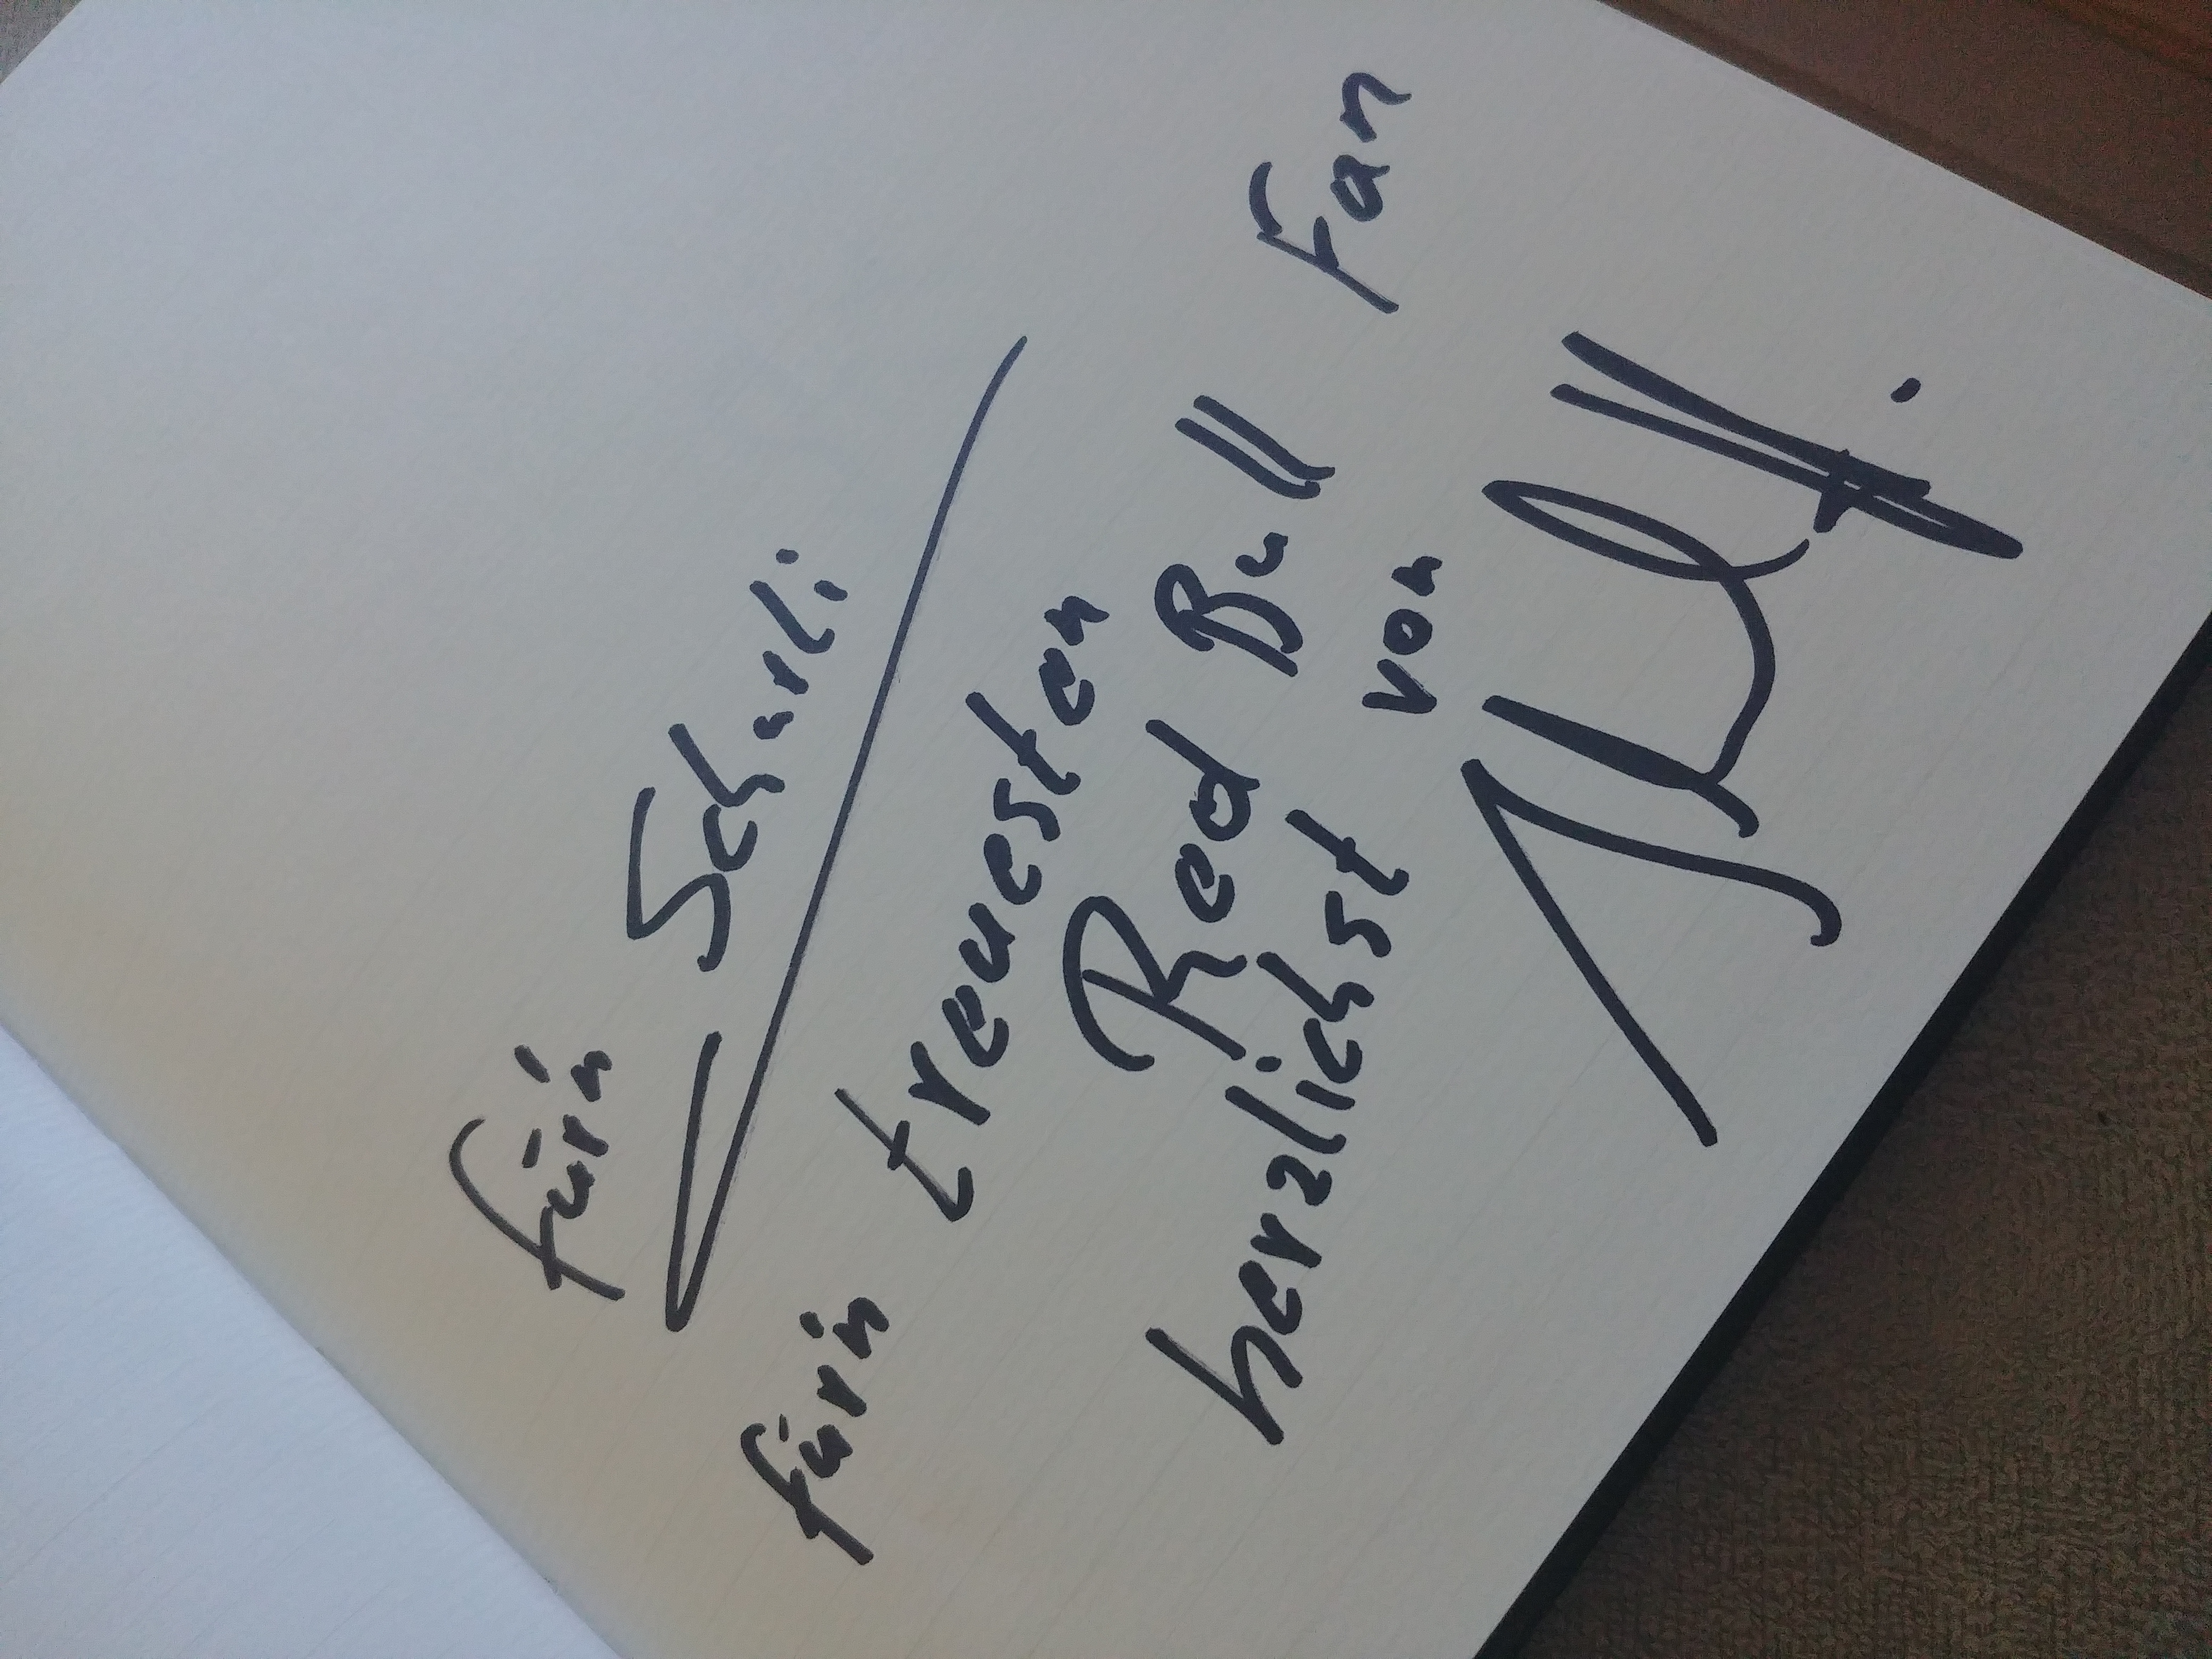 fürn Schurli
fürn treuesten
Red Bull Fan
herzlichst von